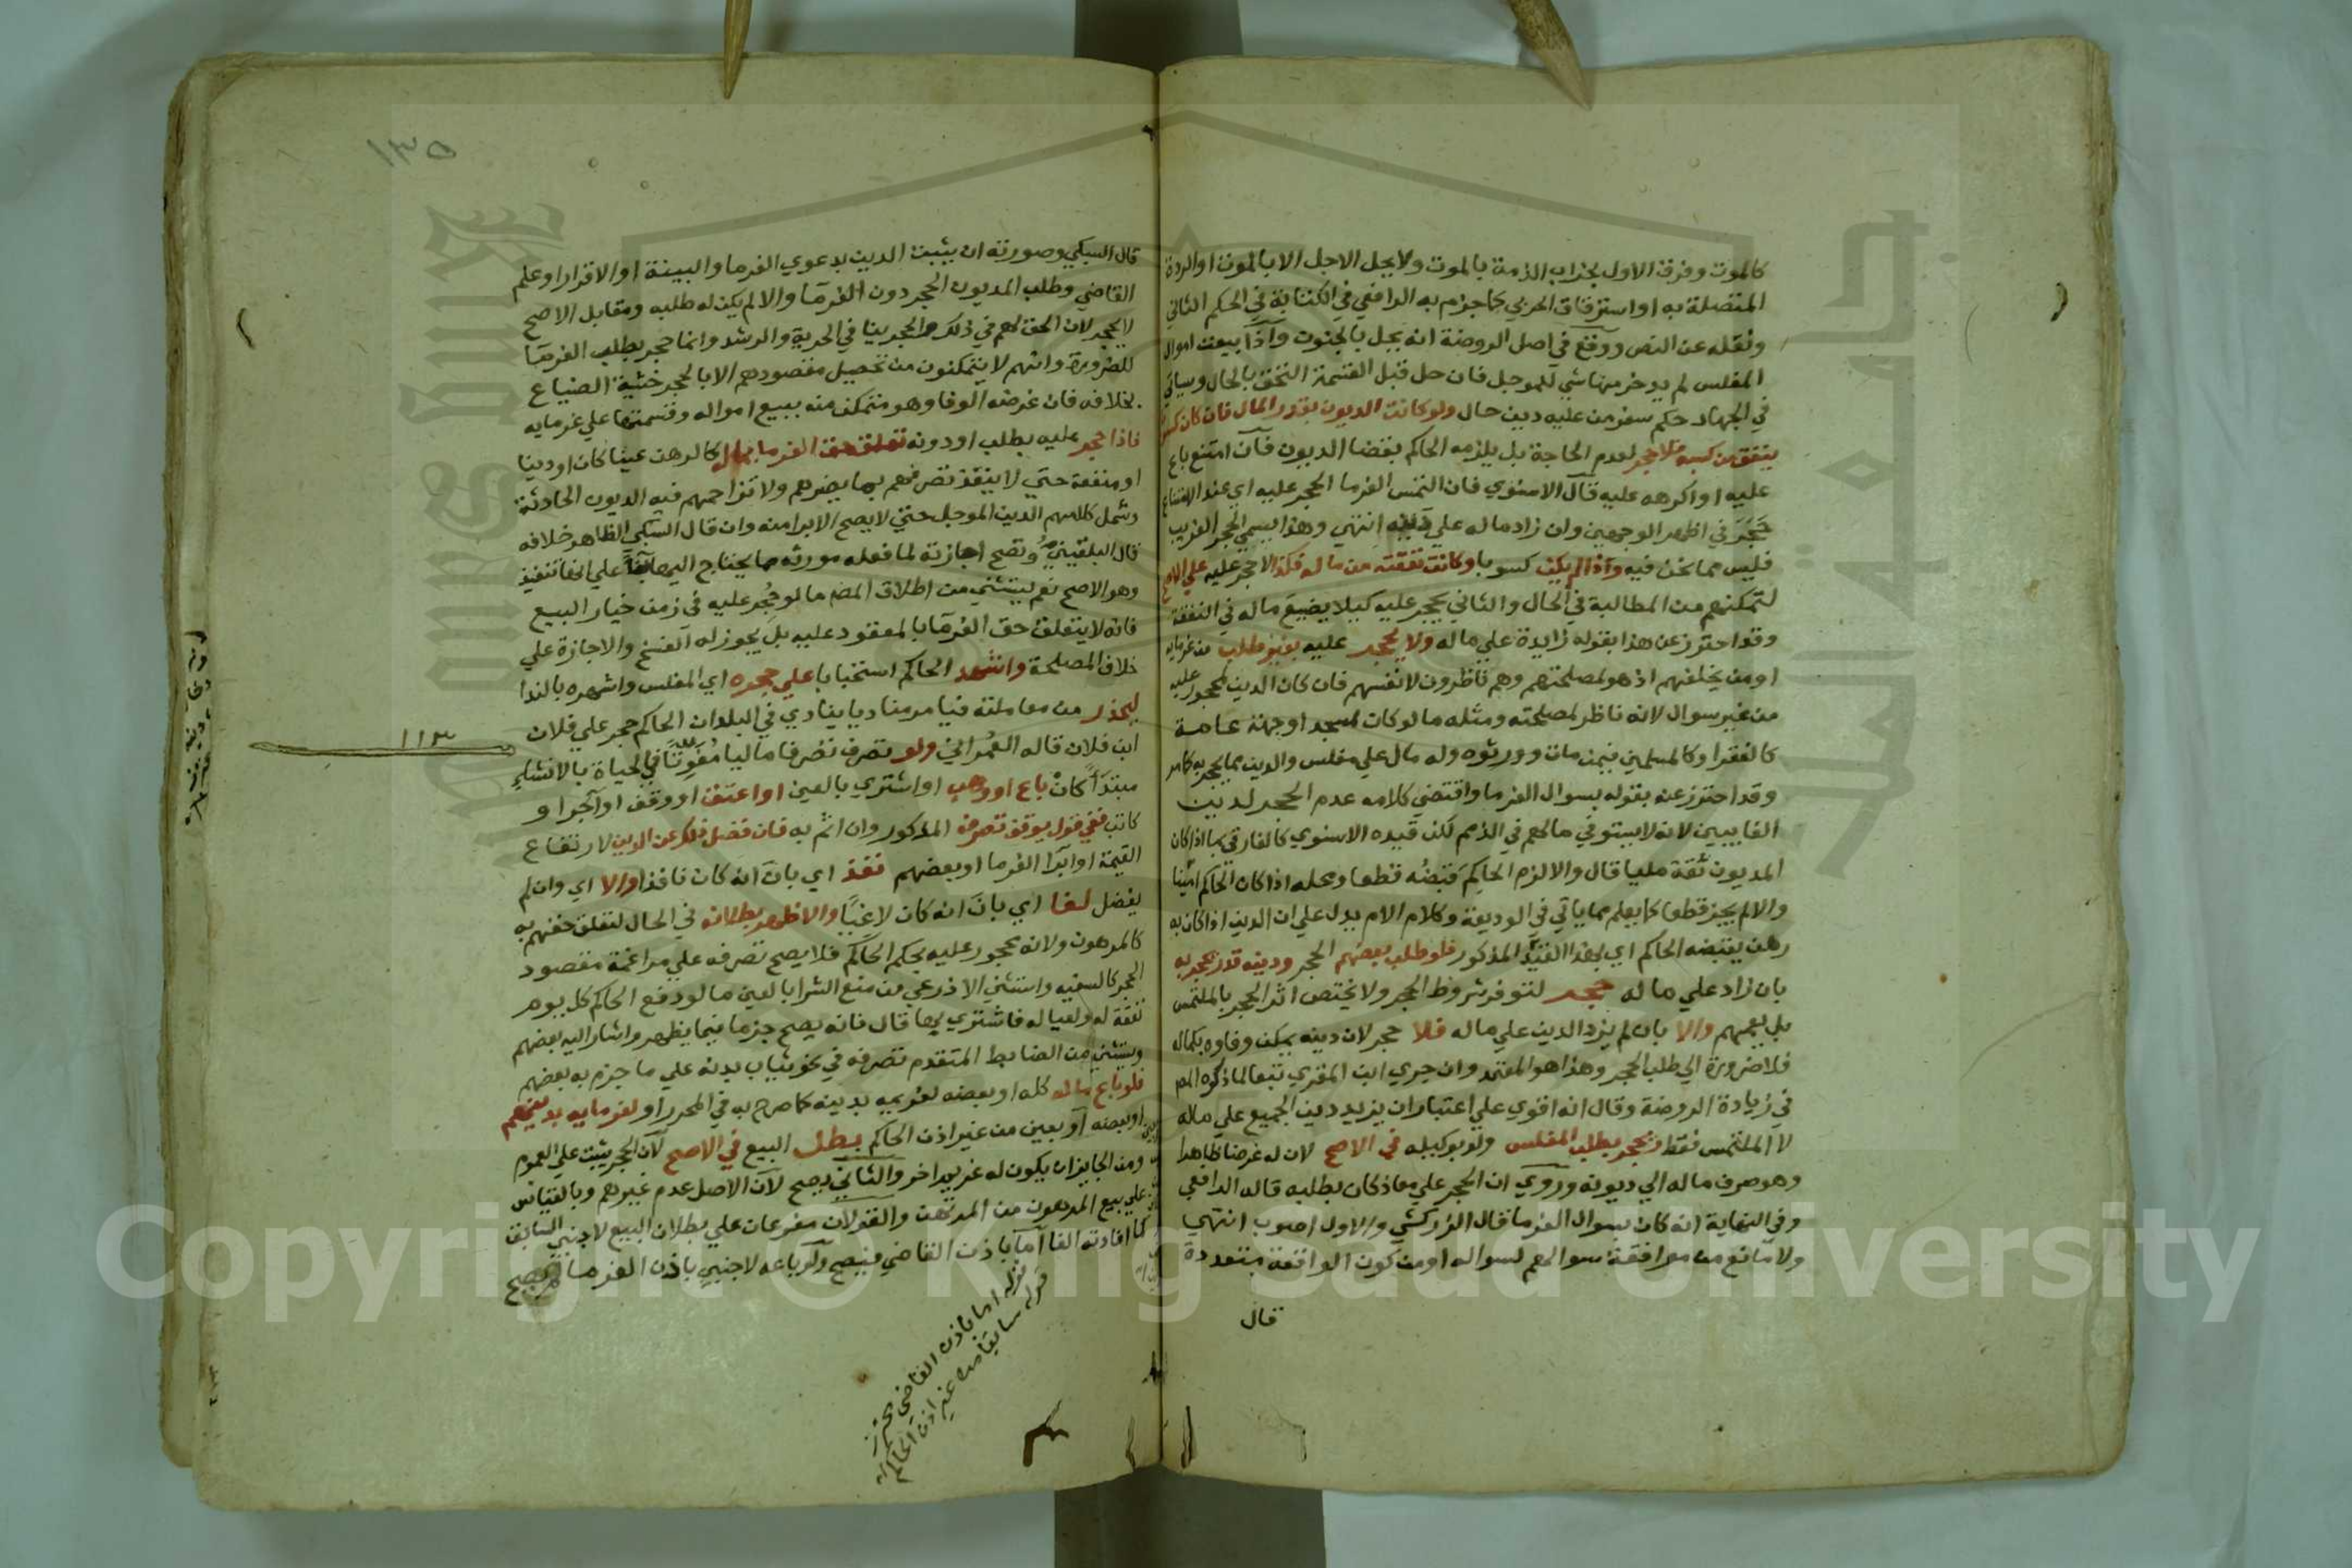 كالموت وفرق الاول بخراب الذمة بالموت ولا يحل الاجل الا بالموت او الردة
المتصلة به او استرقاق الحربي كما جزم به الرافعي في الكتابة في الحكم الثاني
ونقله عن النص ووقع في اصل الروضة انه يحل بالجنون واذا بيعت اموال
المفلس لم يدخر منها شي للموجل فان حل قبل القسمة التحق بالحال وسياتي
في الجهاد حكم سفر من عليه دين حال ولو كانت الديون بقدر المال فان كان كسوبا
ينفق من كسبه فلا حجر لعدم الحاجة بل يلزمه الحاكم بقضا الديون فان امتنع باع
عليه او اكرهه عليه قال الاسنوي فان التمس الغرما الحجر عليه اي عند الامتناع
حجر في اظهر الوجهين وان زاد ماله على دينه انتهي وهذا يسمي الحجر الغريب
فليس مما نحن فيه واذا لم يكن كسوبا وكانت نفقته من ماله فكذا لا حجر عليه علي الاصح
لتمكنهم من المطالبة في الحال والثاني يحجر عليه كيلا يضيع ماله في النفقة
وقد احترز عن هذا بقوله زايدة علي ماله ولا يحجر عليه بغير طلب من غرمايه
او من يخلفهم اذ هو لمصلحتهم وهم ناظرون لانفسهم فان كان الدين لمحجور عليه
من غير سوال لانه ناظر لمصلحته ومثله ما لو كان لمسجد او جهة عامة
كالفقرا وكالمسلمين فيمن مات وورثوه وله مال علي مفلس والدين مما يحجر به كما مر
وقد احترز عنه بقوله بسوال الغرما واقتضي كلامه عدم الحجر لدين
الغايبين لانه لا يستوفي مالهم في الذمم لكن قيده الاسنوي كالفارقي بما اذا كان
المديون ثقة مليا قال والا لزم الحاكم قبضه قطعا ومحله اذا كان الحاكم امينا
والا لم يجز قطعا كما يعلم مما ياتي في الوديعة وكلام الام يدل علي ان الدين اذا كان به
رهن يقبضه الحاكم اي بهذا القيد المذكور فلو طلب بعضهم الحجر ودينه قدر يحجر به
بان زاد علي ماله حجر لتوفر شروط الحجر ولا يختص اثر الحجر بالملتمس
بل يعمهم والا بان لم يزد الدين علي ماله فلا حجر لان دينه يمكن وفاوه بكماله
فلا ضرورة الي طلب الحجر وهذا هو المعتمد وان جري ابن المقري تبعا لما ذكره المص
في زيادة الروضة وقال انه اقوي علي اعتبار ان يزيد دين الجميع علي ماله
لا الملتمس فقط ويحجر بطلب المفلس ولو بوكيله في الاصح لان له غرضا ظاهرا
وهو صرف ماله الي ديونه وروي ان الحجر علي معاذ كان بطلبه قاله الرافعي
وفي النهاية انه كان بسوال الغرما قال الزركشي والاول اصوب انتهي
ولا مانع من موافقة سوالهم لسواله او من كون الواقعة متعددة
قال
١٣٥
قال السبكي وصورته ان يثبت الدين بدعوي الغرما والبينة او الاقرار او علم
القاضي وطلب المديون الحجر دون الغرما والا لم يكن له طلبه ومقابل الاصح
لا يحجر لان الحق لهم في ذلك والحجر ينافي الحرية والرشد وانما حجر بطلب الغرما
للضرورة وانهم لا يتمكنون من تحصيل مقصودهم الا بالحجر خشية الضياع
بخلافه فان غرضه الوفا وهو متمكن منه ببيع امواله وقسمتها علي غرمايه
فاذا حجر عليه بطلب او دونه تعلق حق الغرما بماله كالرهن عينا كان او دينا
او منفعة حتي لا ينفذ تصرفهم بما يضرهم ولا تزاحمهم فيه الديون الحادثة
وشمل كلامهم الدين الموجل حتي لا يصح الابرا منه وان قال السبكي الظاهر خلافه
قال البلقيني وتصح اجازته لما فعله مورثه مما يحتاج اليها بنا علي انها تنفيذ
وهو الاصح نعم يستثني من اطلاق المص ما لو حجر عليه في زمن خيار البيع
فانه لا يتعلق حق الغرما بالمعقود عليه بل يجوز له الفسخ والاجازة علي
خلاف المصلحة واشهد الحاكم استحبابا علي حجره اي المفلس واشهره بالندا
ليحذر من معاملته فيامر مناديا ينادي في البلد ان الحاكم حجر علي فلان
ابن فلان قاله العمراني ولو تصرف تصرفا ماليا مفوتا في الحياة بالانشاء
مبتدأ كان باع او وهب او اشتري بالعين او اعتق او وقف او آجر او
كاتب ففي قول يوقف تصرفه المذكور وان اثم به فان فضل ذلك عن الدين لارتفاع
القيمة او ابرا الغرما او بعضهم نفذ اي بان انه كان نافذا والا اي وان لم
يفضل لغا اي بان انه كان لاغيا والاظهر بطلانه في الحال لتعلق حقهم به
كالمرهون ولانه محجور عليه بحكم الحاكم فلا يصح تصرفه علي مراغمة مقصود
الحجر كالسفيه واستثني الاذرعي من منع الشرا بالعين ما لو دفع الحاكم كل يوم
نفقة له ولعياله فاشتري بها قال فانه يصح جزما فيما يظهر واشار اليه بعضهم
ويستثني من الضابط المتقدم تصرفه في نحو ثياب بدنه علي ما جزم به بعضهم
فلو باع ماله كله او بعضه لغريمه بدينه كما صرح به في المحرر او لغرمايه بدينهم
او بعضه او بعين من غير اذن الحاكم بطل البيع في الاصح لان الحجر يثبت علي العموم
ومن الجايز ان يكون له غريم اخر والثاني يصح لان الاصل عدم غيرهم وبالقياس
علي بيع المرهون من المرتهن والقولان مفرعان علي بطلان البيع لاجنبي السابق
كما افادته الفا اما باذن القاضي فيصح ولو باعه لاجنبي باذن الغرما لم يصح
قوله اما باذن القاضي محترز
قوله سابقا من غير اذن الحاكم
١١٣